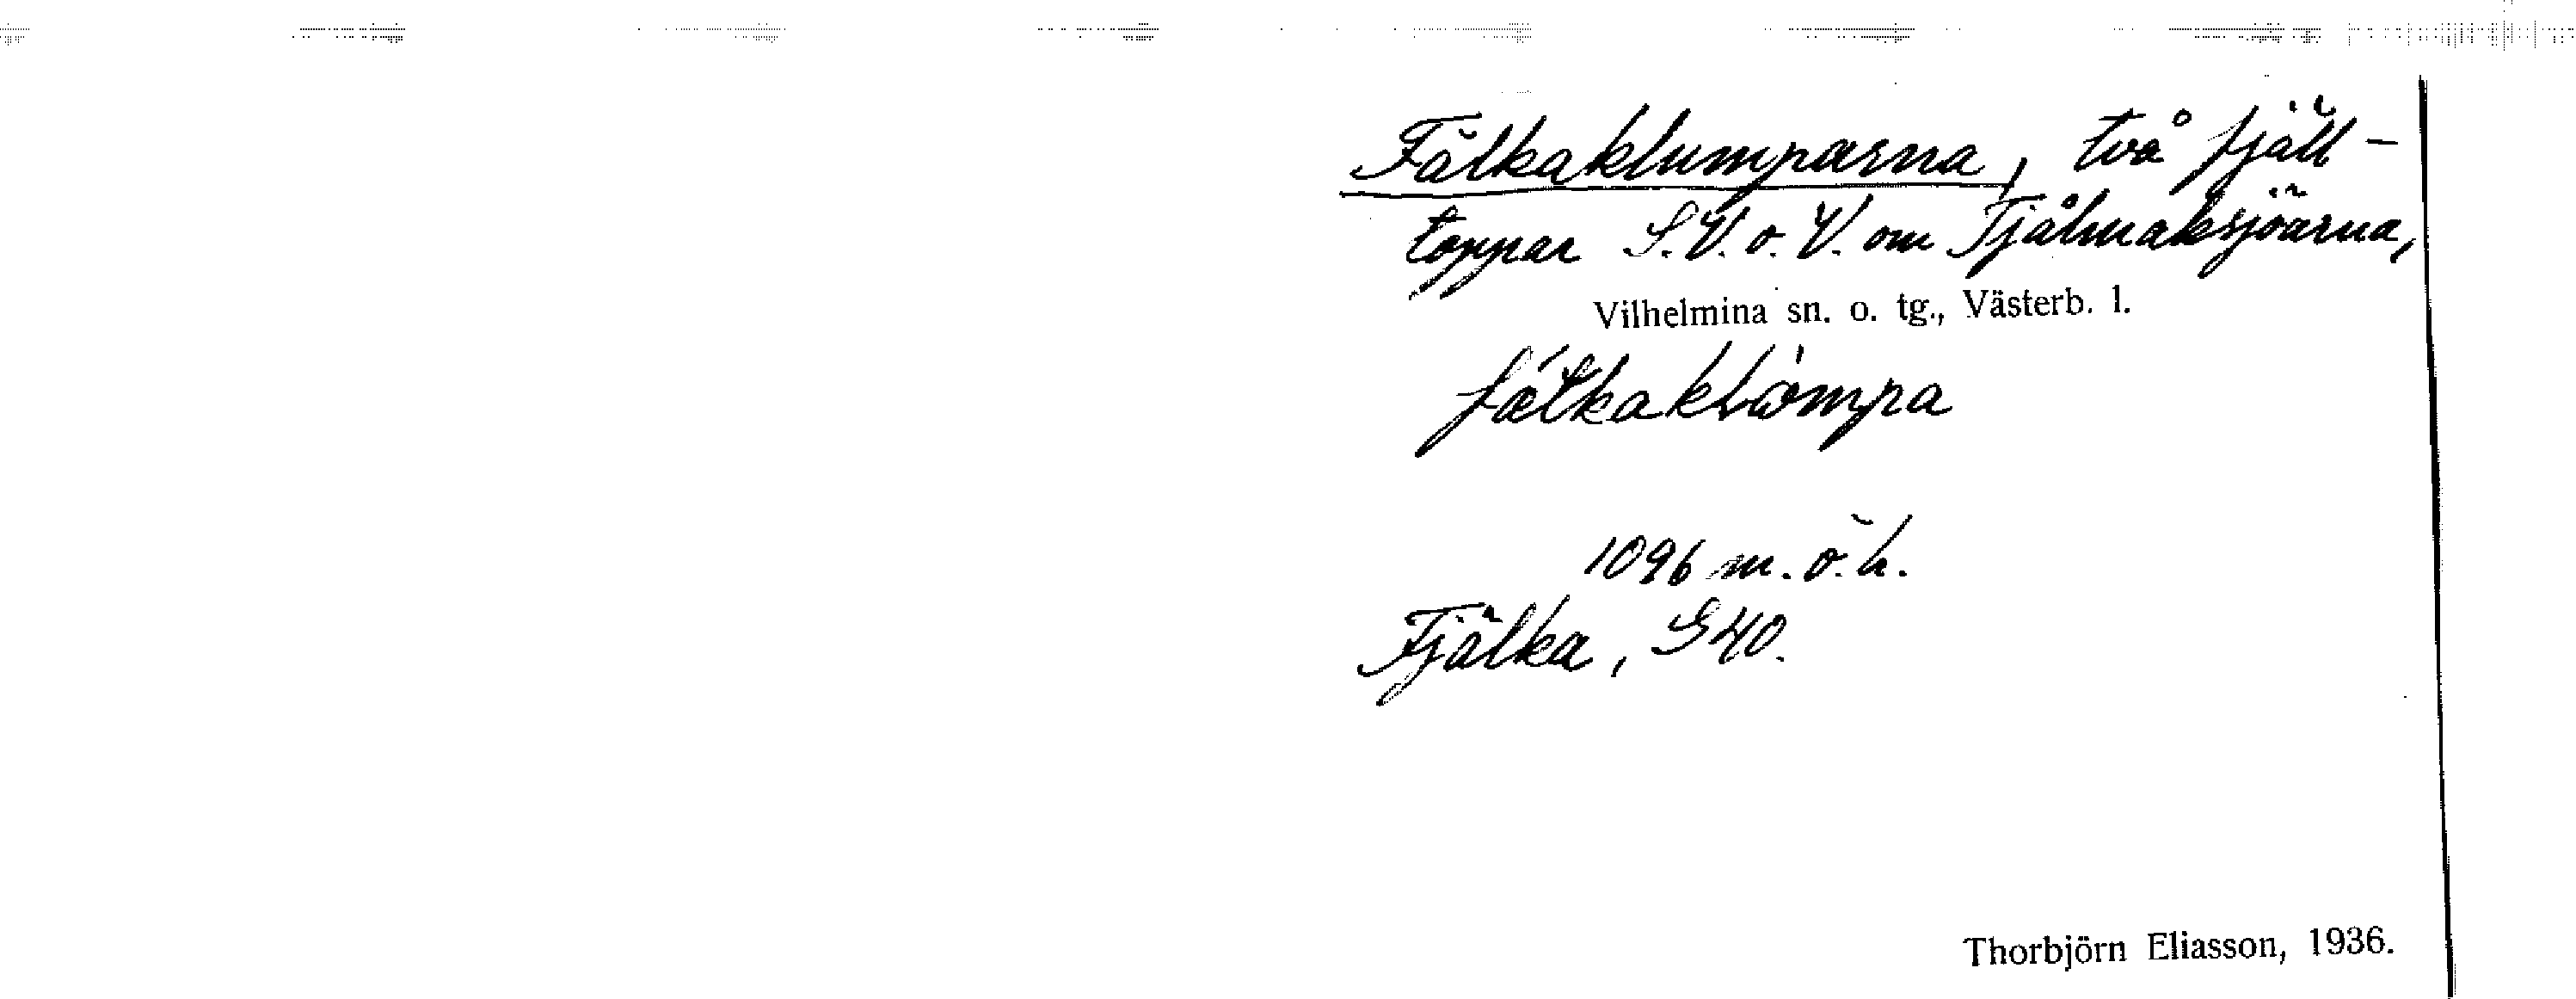 Fälkaklumparna, två fjäll-
toppar S.V. o. V. om Tjålmaksjöarna,
Vilhelmina sn. o. tg., Västerb. l.
fälkaklòmpa
1096 m.ö.h.
Fjälka, G40.
Thorbjörn Eliasson, 1936.